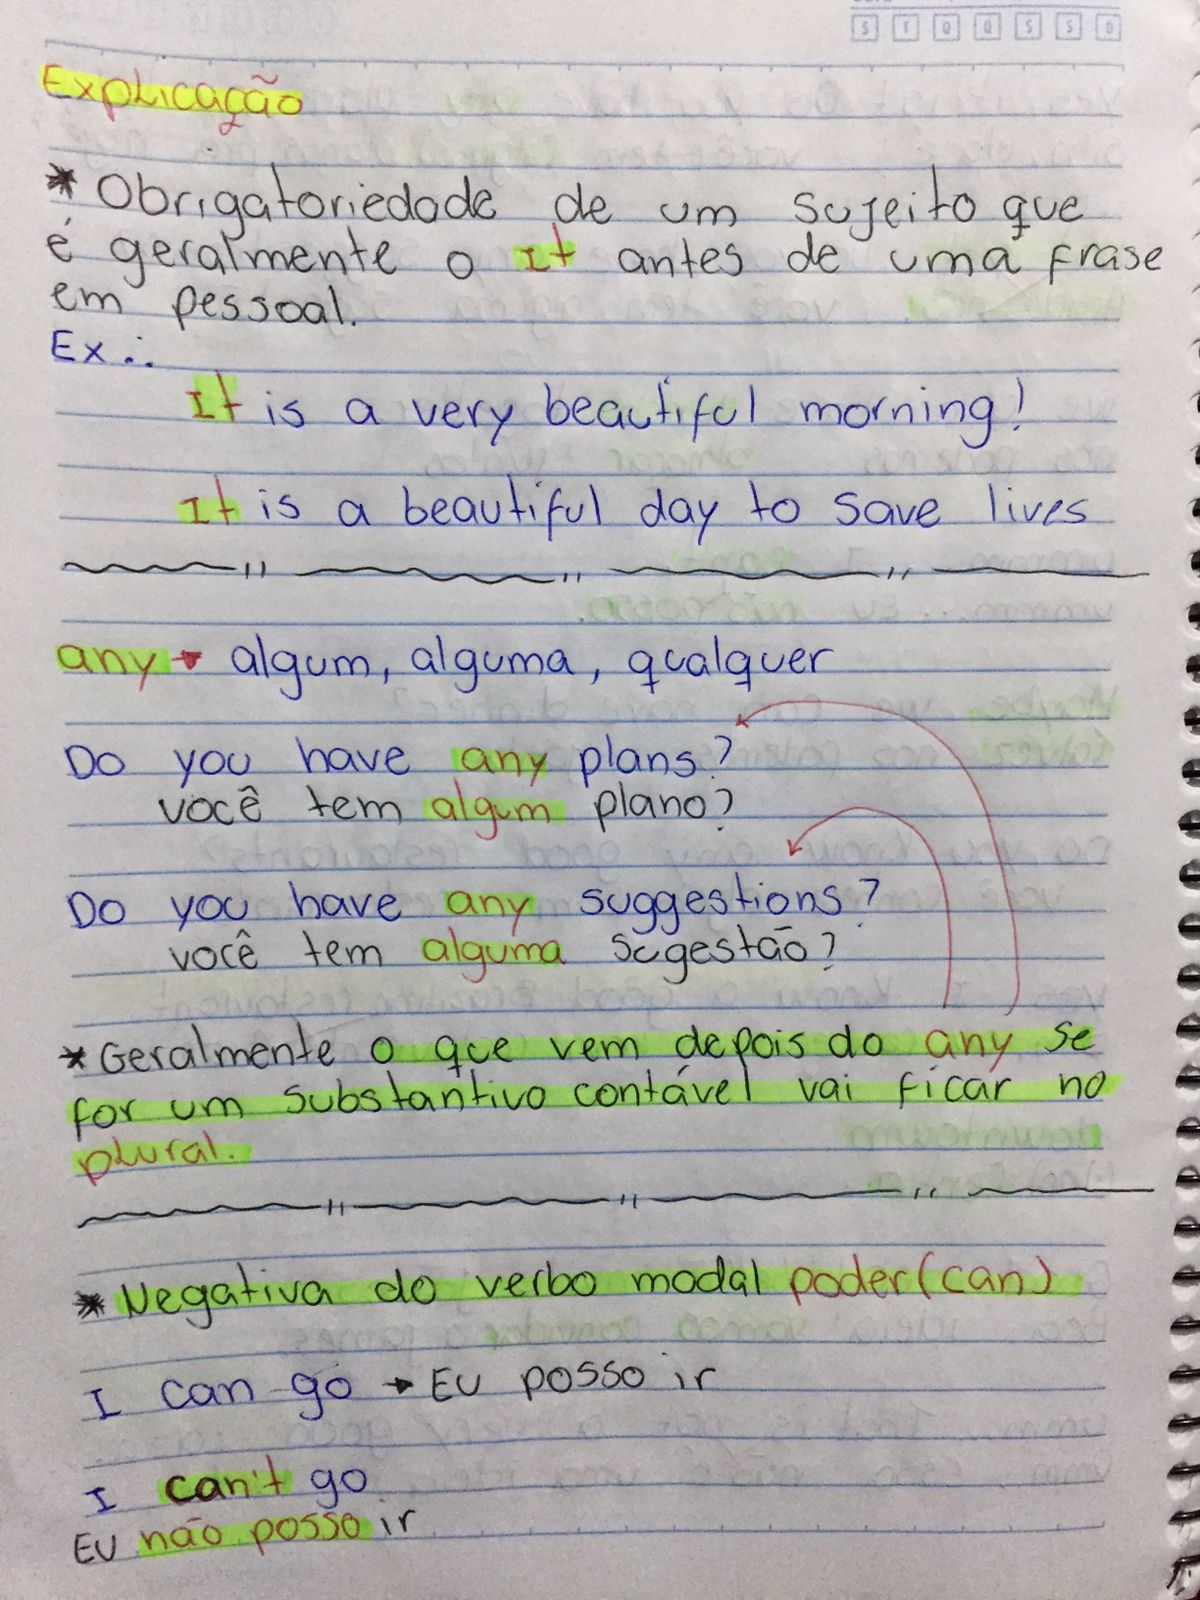 S T Q Q S S D
Explicação
* Obrigatoriedade de um sujeito que
é geralmente o It antes de uma frase
em pessoal.
Ex.:
It is a very beautiful morning!
It is a beautiful day to save lives
any → algum, alguma, qualquer
Do you have any plans?
você tem algum plano?
Do you have any suggestions?
você tem alguma sugestão?
* Geralmente o que vem depois do any se
for um substantivo contável vai ficar no
plural.
* Negativa do verbo modal poder (can)
I can go → Eu posso ir
I can't go
Eu não posso ir